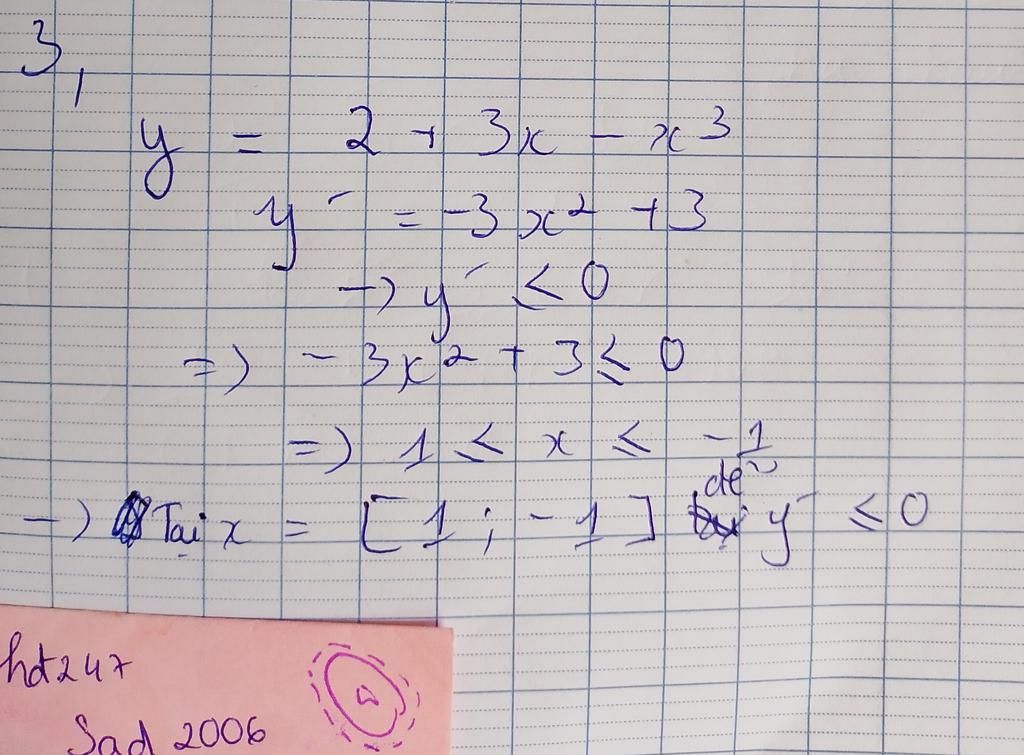 3,
y = 2 + 3x - x³
y' = -3x² + 3
→ y' ≤ 0
⇒ -3x² + 3 ≤ 0
⇒ 1 ≤ x ≤ -1
→ Tại x = [1; -1] để y' ≤ 0
hdt247
Sad 2006